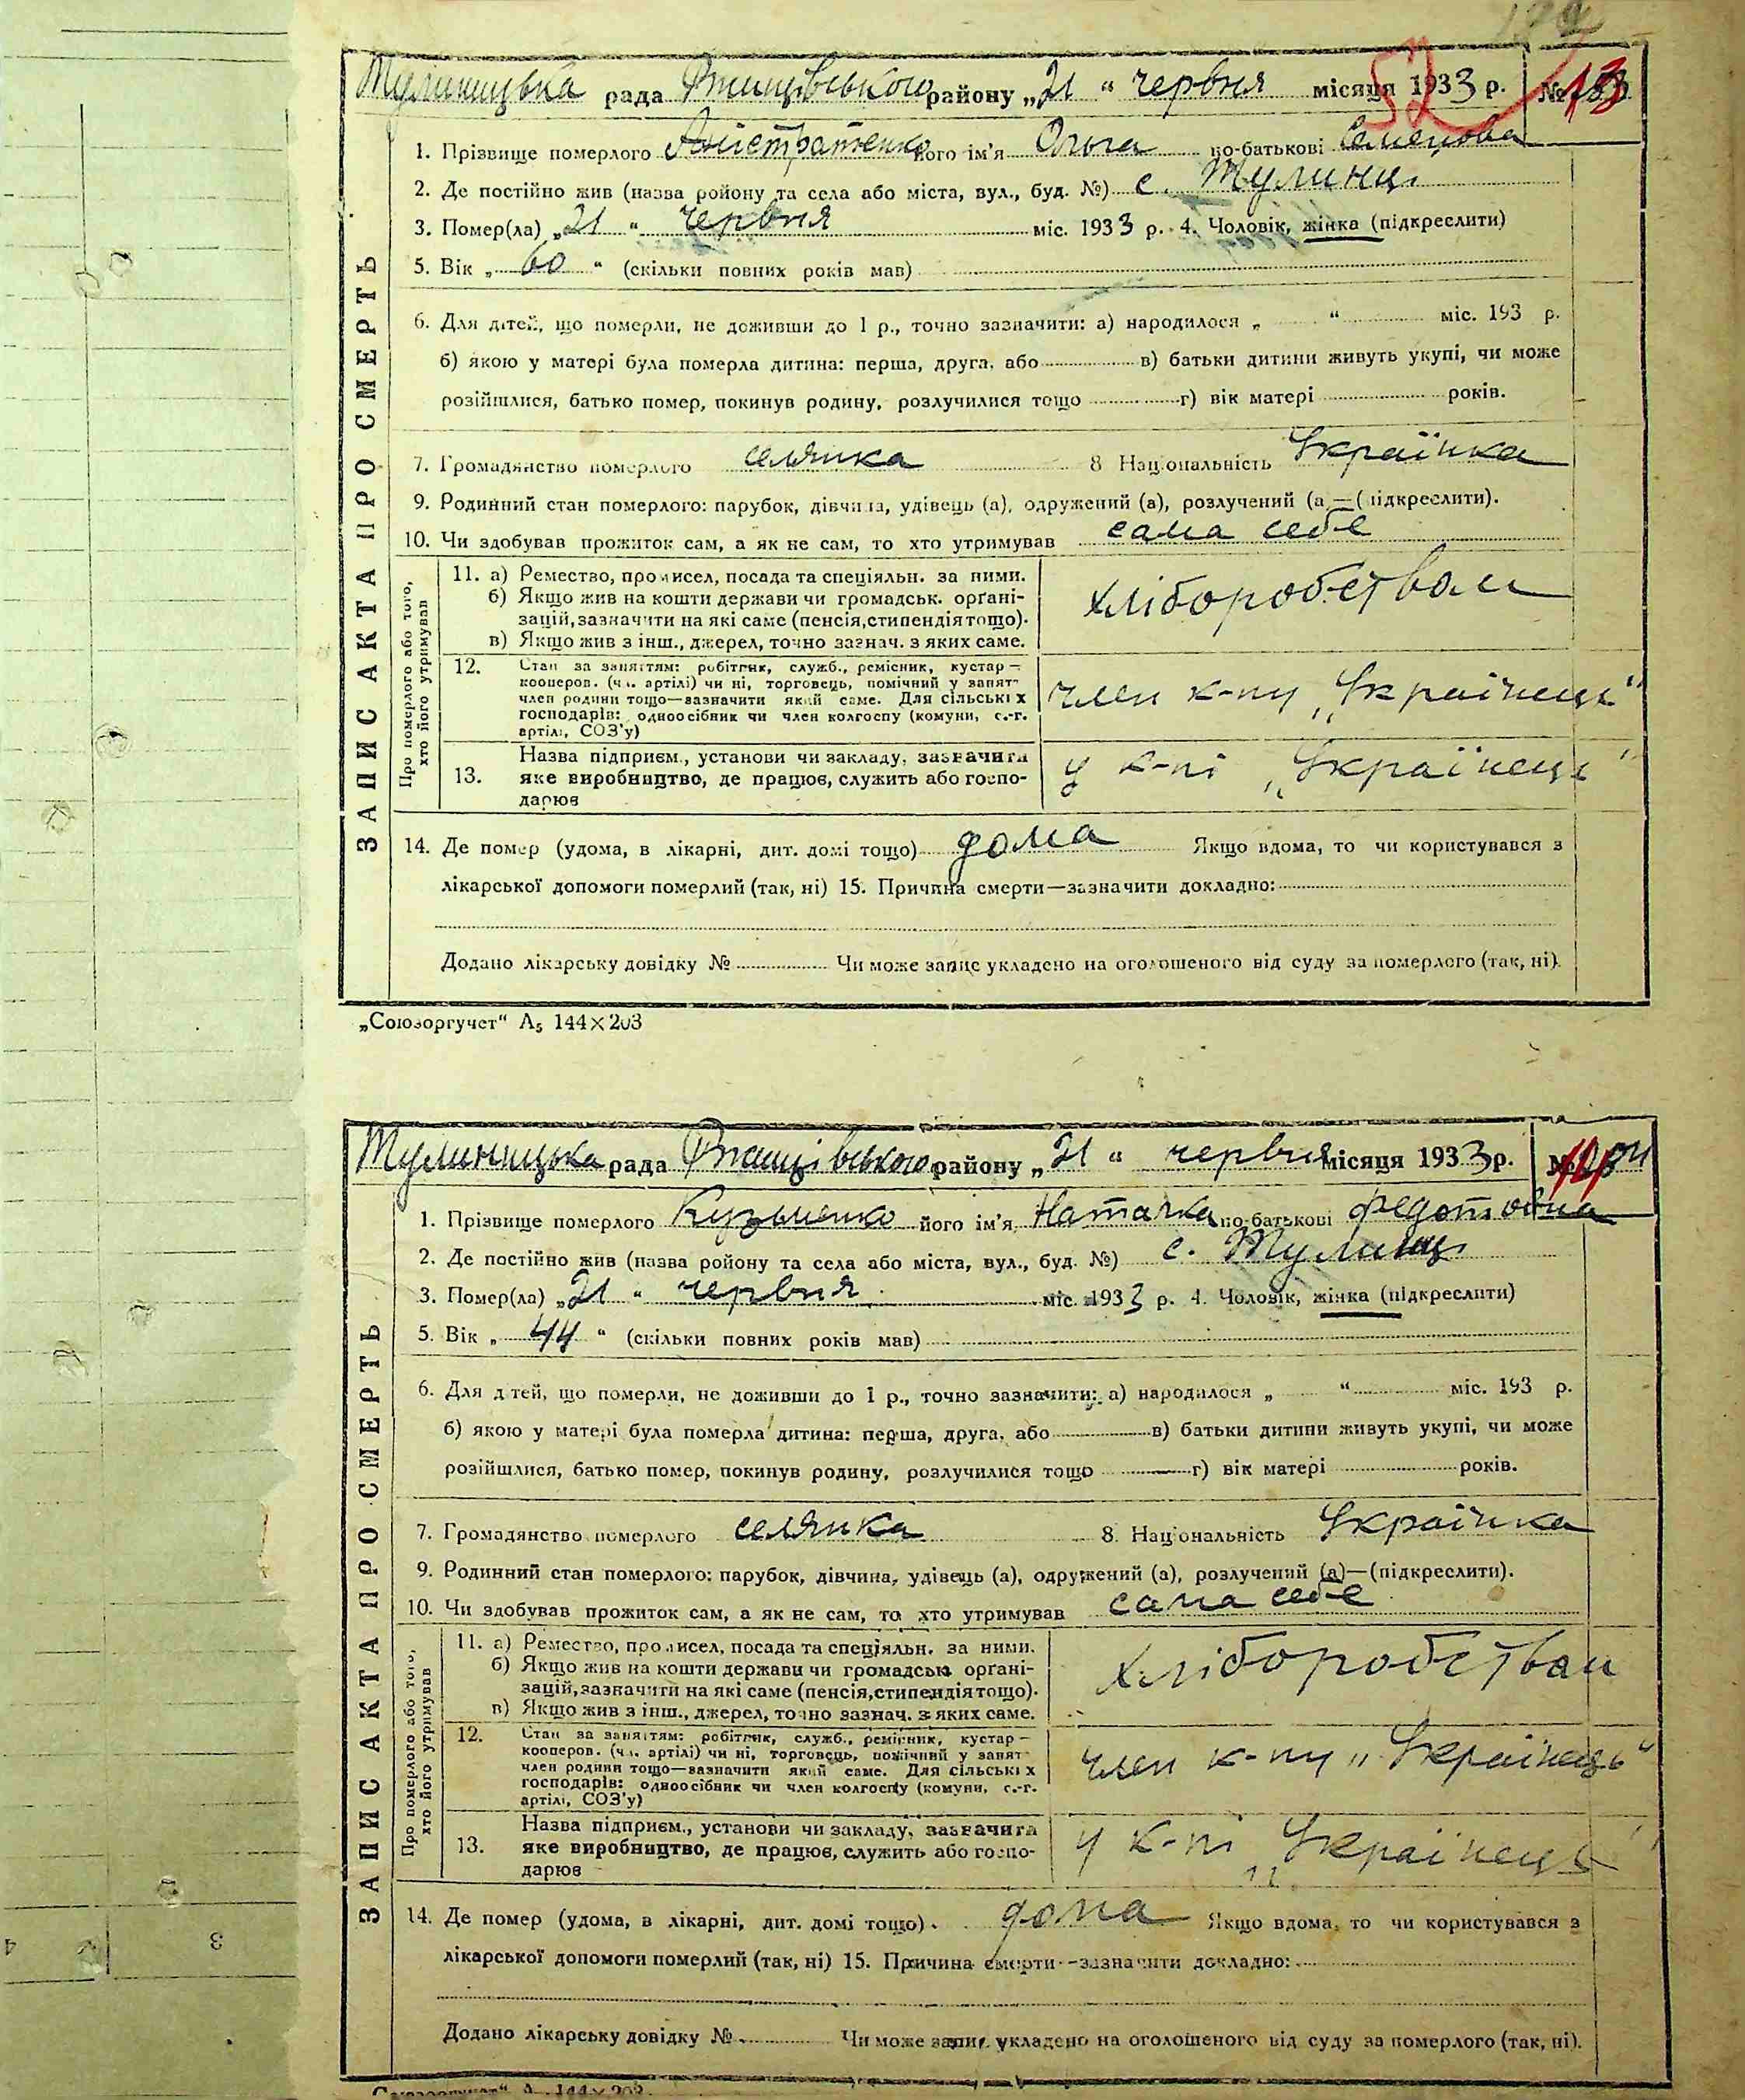 52
Тулинецька рада Ржищівського району „21“ червня місяця 1933 р. №
1. Прізвище померлого його ім'я Ольга по-батькові Семенова
2. Де постійно жив (назва ройону та села або міста, вул., буд. №) с. Тулинці
3. Помер(ла) „21“ червня міс. 1933 р. 4. Чоловік, жінка (підкреслити)
5. Вік „60“ (скільки повних років мав)
6. Для дітей, що померли, не доживши до 1 р., точно зазначити: а) народилося „ “ міс. 193 р.
б) якою у матері була померла дитина: перша, друга, або в) батьки дитини живуть укупі, чи може
розійшлися, батько помер, покинув родину, розлучилися тощо г) вік матері років.
7. Громадянство померлого селянка 8 Національність Українка
9. Родинний стан померлого: парубок, дівчина, удівець (а), одружений (а), розлучений (а —(підкреслити).
10. Чи здобував прожиток сам, а як не сам, то хто утримував сама себе
ЗАПИС АКТА ПРО СМЕРТЬ
Про померлого або того,
хто його утримував
11. а) Ремество, промисел, посада та спеціяльн. за ними.
б) Якщо жив на кошти держави чи громадськ. орґані-
зацій, зазначити на які саме (пенсія, стипендія тощо).
в) Якщо жив з інш., джерел, точно зазнач. з яких саме.
хліборобством
12. Стан за заняттям: робітник, служб., ремісник, кустар —
кооперов. (чл. артілі) чи ні, торговець, помічний у занят-
член родини тощо—зазначити який саме. Для сільських
господарів: одноосібник чи член колгоспу (комуни, с.-г.
артілі, СОЗ'у)
член к-пу „Українець“
13. Назва підприєм., установи чи закладу, зазначити
яке виробництво, де працює, служить або госпо-
дарює
у к-пі „Українець“
14. Де помер (удома, в лікарні, дит. домі тощо) дома Якщо вдома, то чи користувався з
лікарської допомоги померлий (так, ні) 15. Причина смерти—зазначити докладно:
Додано лікарську довідку № Чи може запис укладено на оголошеного від суду за померлого (так, ні).
„Союзоргучет“ А₅ 144×203
Тулинецька рада Ржищівського району „21“ червня місяця 1933 р. №
1. Прізвище померлого Кузьменко його ім'я Наталка по-батькові Федотовна
2. Де постійно жив (назва ройону та села або міста, вул., буд. №) с. Тулинці
3. Помер(ла) „21“ червня міс. 1933 р. 4. Чоловік, жінка (підкреслити)
5. Вік „44“ (скільки повних років мав)
6. Для дітей, що померли, не доживши до 1 р., точно зазначити: а) народилося „ “ міс. 193 р.
б) якою у матері була померла дитина: перша, друга, або в) батьки дитини живуть укупі, чи може
розійшлися, батько помер, покинув родину, розлучилися тощо г) вік матері років.
7. Громадянство померлого селянка 8. Національність Українка
9. Родинний стан померлого: парубок, дівчина, удівець (а), одружений (а), розлучений (а)—(підкреслити).
10. Чи здобував прожиток сам, а як не сам, то хто утримував сама себе
ЗАПИС АКТА ПРО СМЕРТЬ
Про померлого або того,
хто його утримував
11. а) Ремество, промисел, посада та спеціяльн. за ними.
б) Якщо жив на кошти держави чи громадськ. орґані-
зацій, зазначити на які саме (пенсія, стипендія тощо).
в) Якщо жив з інш., джерел, точно зазнач. з яких саме.
хліборобством
12. Стан за заняттям: робітник, служб., ремісник, кустар —
кооперов. (чл. артілі) чи ні, торговець, помічний у занят-
член родини тощо—зазначити який саме. Для сільських
господарів: одноосібник чи член колгоспу (комуни, с.-г.
артілі, СОЗ'у)
член к-пу „Українець“
13. Назва підприєм., установи чи закладу, зазначити
яке виробництво, де працює, служить або госпо-
дарює
у к-пі „Українець“
14. Де помер (удома, в лікарні, дит. домі тощо) дома Якщо вдома, то чи користувався з
лікарської допомоги померлий (так, ні) 15. Причина смерти—зазначити докладно:
Додано лікарську довідку № Чи може запис укладено на оголошеного від суду за померлого (так, ні).
„Союзоргучет“ А₅ 144×203